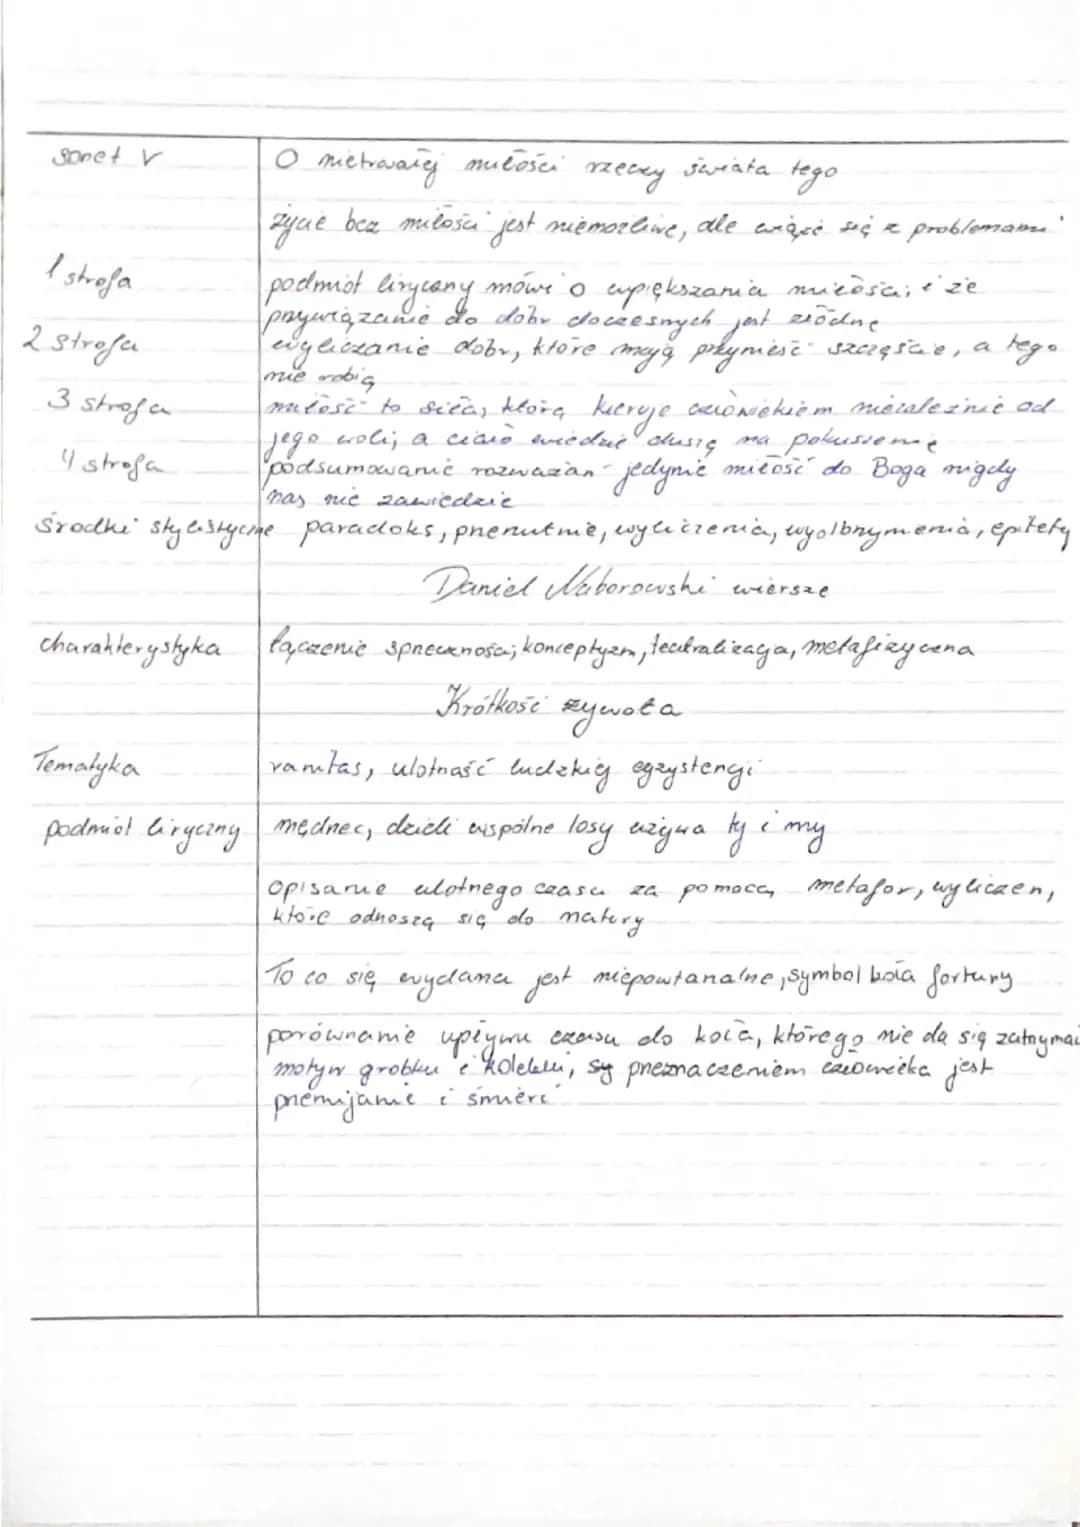 sonet V O nietrwałej miłości rzeczy świata tego
życie bez miłości jest niemożliwe, ale wiąże się z problemami
1 strofa podmiot liryczny mówi o upiększania miłości; i że
przywiązanie do dóbr doczesnych jest złudne
2 strofa wyliczanie dobr, które mają przynieść szczęście, a tego
nie robią
3 strofa miłość to siła, którą kieruje człowiekiem niezależnie od
jego woli; a ciało wiedzie duszę na pokuszenie
4 strofa podsumowanie rozważań - jedynie miłość do Boga nigdy
nas nie zawiedzie
środki stylistyczne paradoks, przerzutnie, wyliczenia, wyolbrzymienia, epitety
Daniel Naborowski wiersze
charakterystyka łączenie sprzeczności, konceptyzm, teatralizacja, metafizyczna
Krótkość żywota
Tematyka vanitas, ulotność ludzkiej egzystencji
podmiot liryczny mędrzec, dzieli wspólne losy używa ty i my
Opisanie ulotnego czasu za pomocą metafor, wyliczeń,
które odnoszą się do natury
To co się wydana jest niepowtarzalne, symbol koła fortuny
porównanie upływu czasu do koła, którego nie da się zatrzymać
motyw grobku i kolebki, przeznaczeniem człowieka jest
przemijanie i śmierć